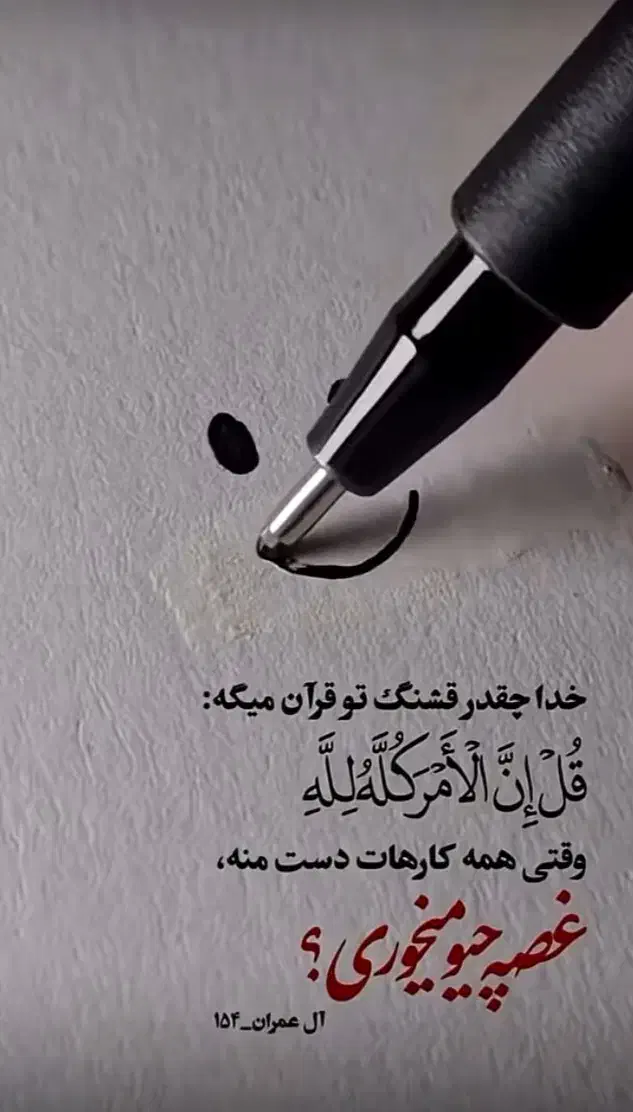 خدا چقدر قشنگ تو قرآن میگه:
قُلْ إِنَّ الْأَمْرَ كُلَّهُ لِلَّهِ
وقتی همه کارهات دست منه،
غصه چیو میخوری؟
آل عمران_۱۵۴